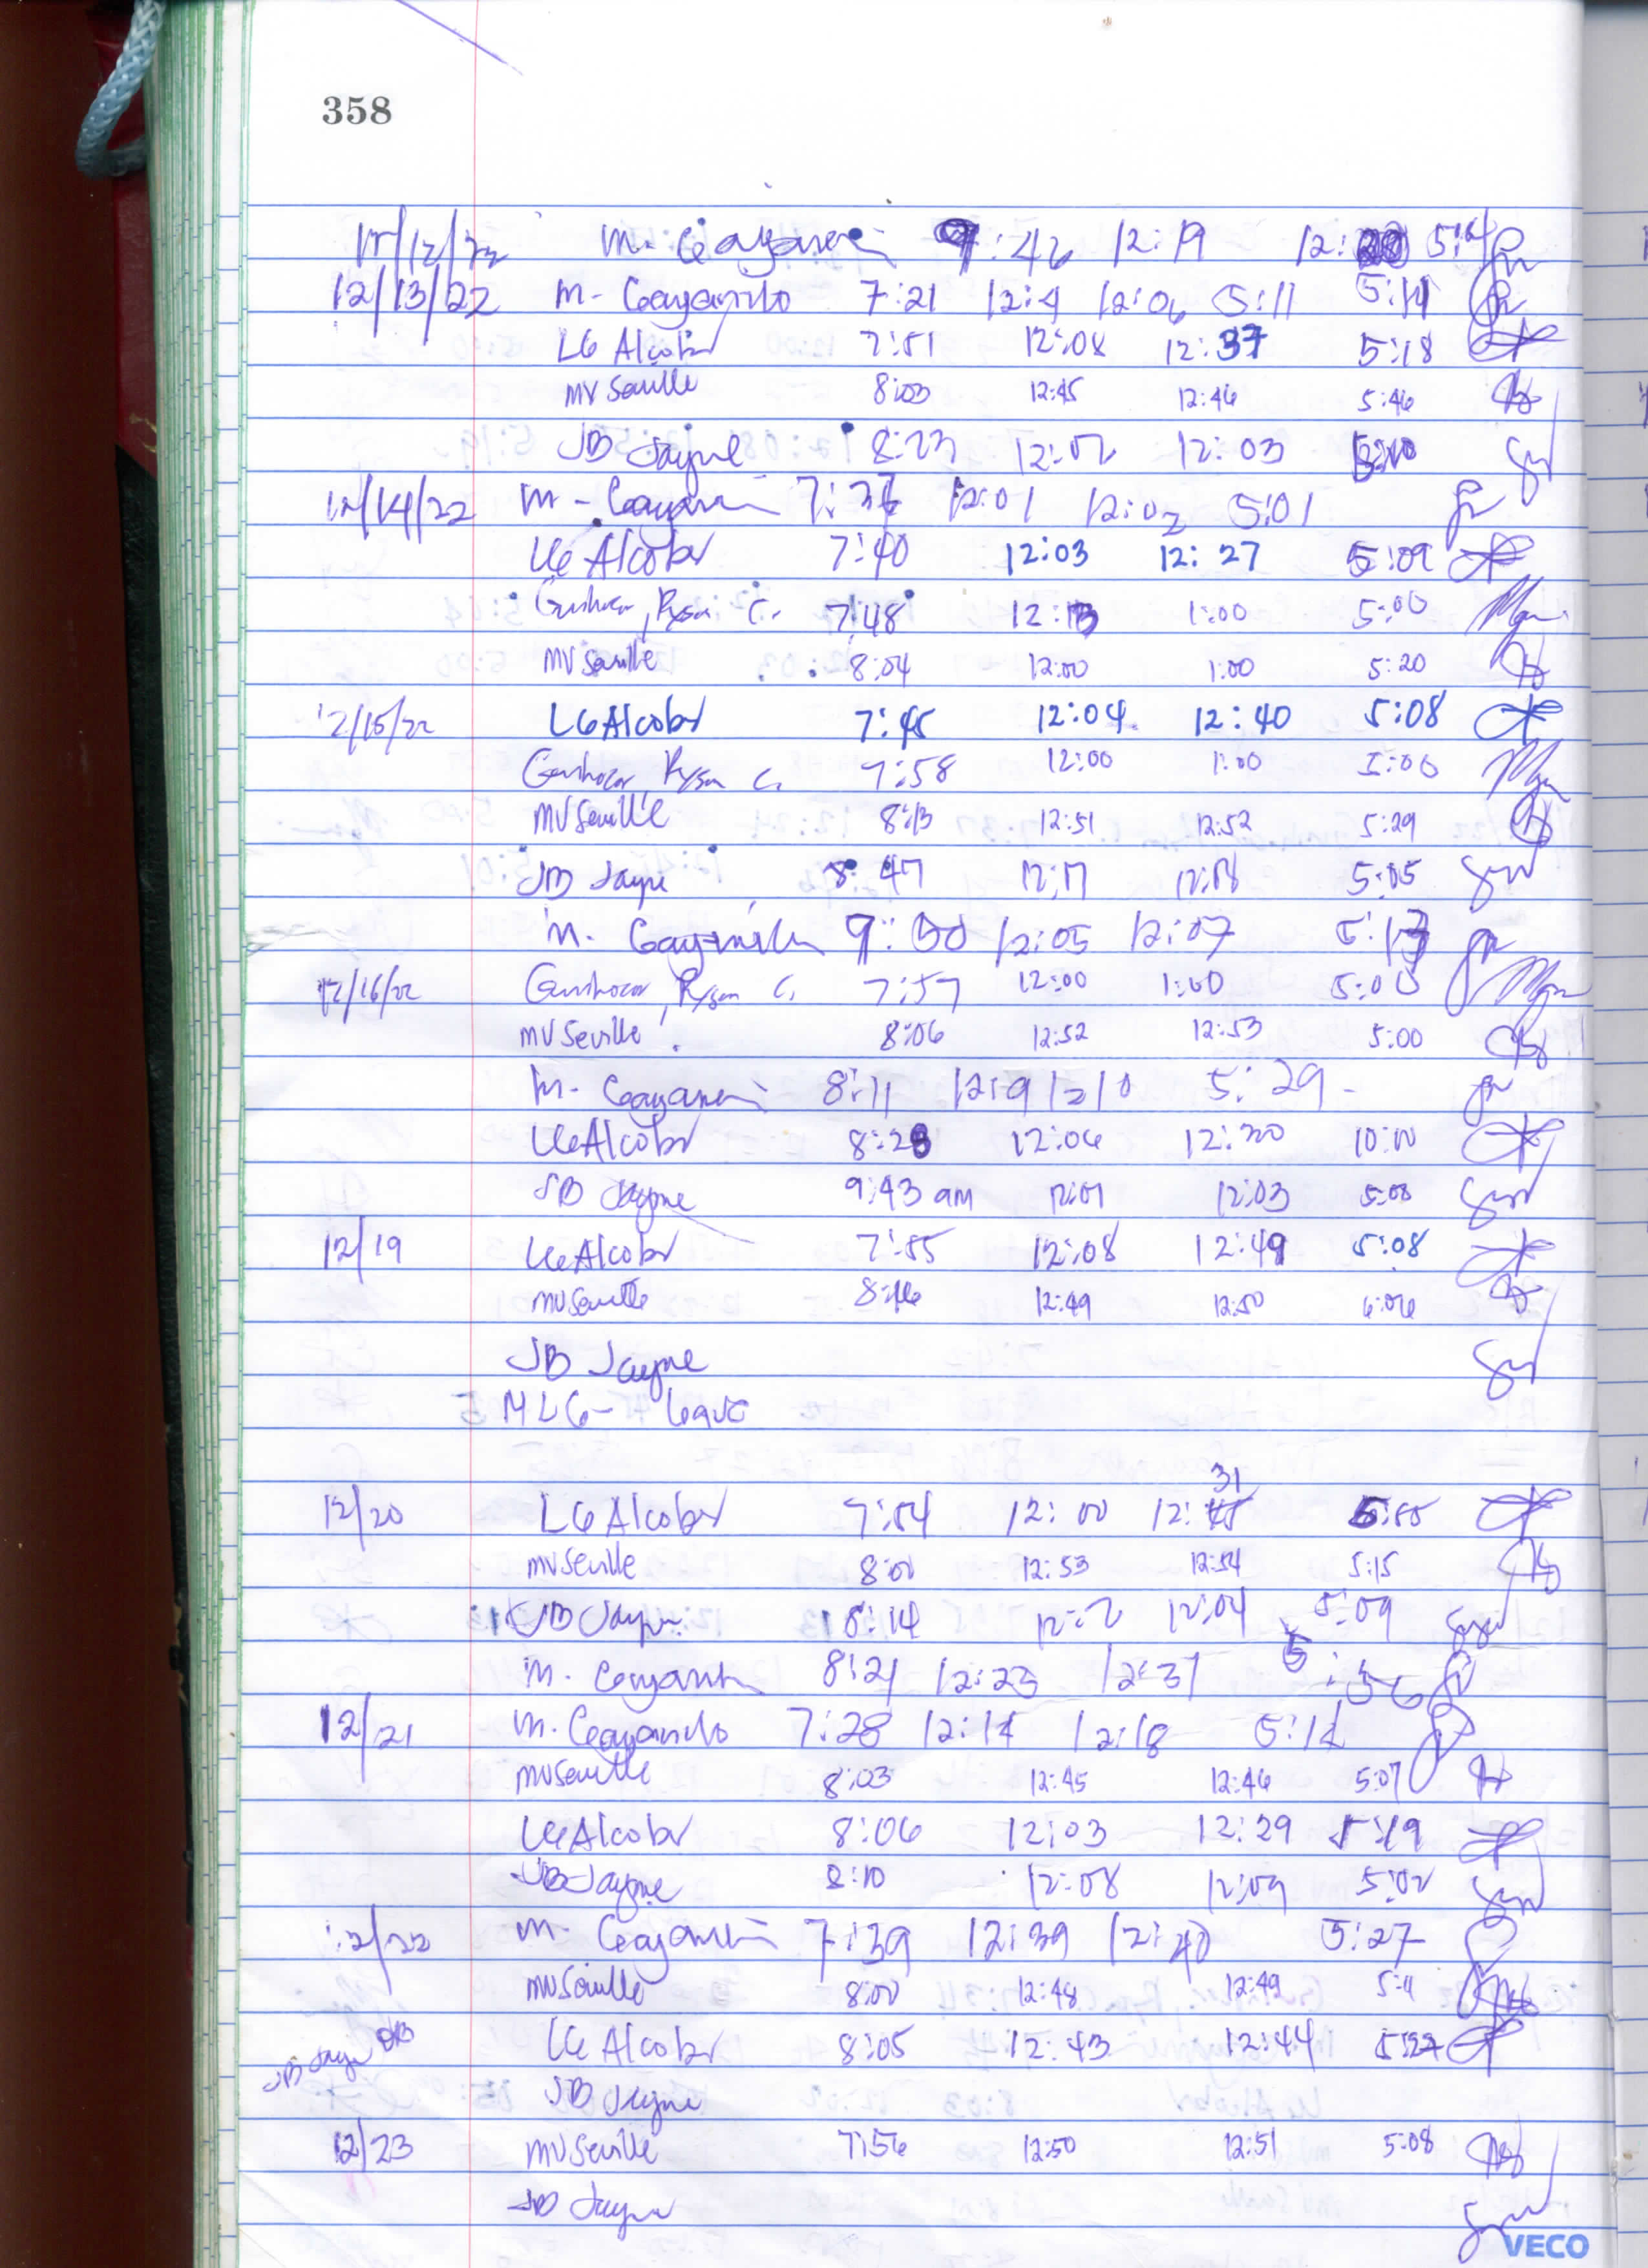 358
12/12/22 M. Gayani 7:46 12:19 12: 5:14
12/13/22 M. Gayanilo 7:21 12:4 12:06 5:11 5:11
LG Alcober 7:51 12:08 12:37 5:18
MV Seville 8:03 12:45 12:46 5:46
JB Jayme 8:23 12:02 12:03 5:10
12/14/22 M. Gayani 12:01 12:02 5:01
LG Alcober 7:40 12:03 12:27 5:09
Ryan C. 7:48 12:13 1:00 5:00
MV Seville 8:04 12:00 1:00 5:20
12/15/22 LG Alcober 7:45 12:04 12:40 5:08
Ryan C. 7:58 12:00 1:00 5:00
MV Seville 8:13 12:51 12:52 5:29
JB Jayme 8:47 12:17 12:18 5:05
M. Gayanilo 12:05 12:07 5:13
12/16/22 Ryan C. 7:57 12:00 1:00 5:00
MV Seville 8:06 12:52 12:53 5:00
M. Gayani 8:11 12:9 12 10 5:29
LG Alcober 8:28 12:06 12:20 10:00
JB Jayme 9:43 am 12:01 12:03 5:03
12/19 LG Alcober 7:55 12:08 12:49 5:08
MV Seville 8:16 12:49 12:50 6:06
JB Jayme
MLG - leave
31
12/20 LG Alcober 7:54 12:00 12:45
MV Seville 8:01 12:53 12:54 5:15
JB Jayme 8:14 12:04 5:09
M. Gayani 8:21 12:23 12:37 5:56
12/21 M. Gayanilo 7:28 12:14 12:18 5:12
MV Seville 8:03 12:45 12:46 5:07
LG Alcober 8:06 12:03 12:29 5:19
JB Jayme 8:10 12:08 12:09 5:02
12/22 M. Gayani 7:39 12:39 12:40 5:27
MV Seville 8:00 12:48 12:49 5:11
JB Jayme OB LG Alcober 8:05 12:43 12:44 5:27
JB Jayme
12/23 MV Seville 7:56 12:50 12:51 5:08
JB Jayme
VECO